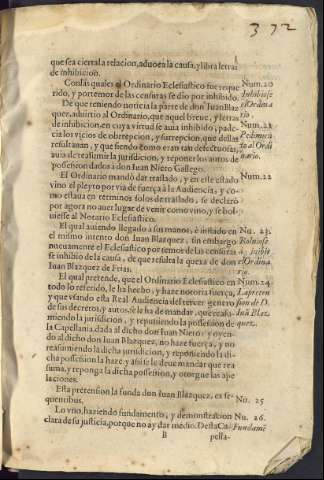 372
que sea cierta la relacion, aduoen la causa, y libra letras
de inhibicion.
Con las quales el Ordinario Eclesiastico fue reque
rido, y por temor de las censuras se dio por inhibido.
Num. 20
Inhibiose
el Ordina
rio.
De que teniendo noticia la parte de don Iuan Blaz
quez, aduirtio al Ordinario, que aquel breue, y letras
de inhibicion, en cuya virtud se auia inhibido, pade-
cia los vicios de obrepcion, y surrepcion, que dellas
resultauan, y que siendo como eran tan defectuosas,
auia de reasumir la jurisdicion, y reponer los autos de
possession dados a don Iuan Nieto Gallego.
Num. 21
Pedimiẽ
to al Ordi
nario.
El Ordinario mandò dar traslado, y en este estado
vino el pleyto por via de fuerça à la Audiencia, y co-
mo estaua en terminos solos de traslado, se declarò
por agora no auer lugar de venir como vino, y se bol-
uiesse al Notario Eclesiastico.
Num. 22
El qual auiendo llegado à sus manos, è instado en
el mismo intento don Iuan Blazquez, sin embargo
nueuamente el Eclesiastico por temor de las censuras
se inhibio de la causa, de que resulta la quexa de don
Iuan Blazquez de Frias.
Nu. 23.
Boluiose
à inhibir
el Ordina
rio.
El qual pretende, que el Ordinario Eclesiastico en
todo lo referido, le ha hecho, y haze notoria fuerça,
y que vsando esta Real Audiencia del tercer genero
de sus decretos, y autos, se le ha de mandar, que reasu-
miendo la jurisdicion, y reponiendo la possession de
la Capellania dada al dicho don Iuan Nieto, y oyen-
do al dicho don Iuan Blazquez, no haze fuerça, y no
reasumiendo la dicha jurisdicion, y reponiendo la di-
cha possession la haze, y assi se le deue mandar que rea
suma, y reponga la dicha possession, y otorgue las ape
laciones.
Num. 24.
La preten
sion de D.
Iuã Blaz
quez.
Esta pretension la funda don Iuan Blazquez, ex se-
quentibus.
Nu. 25
Lo vno, haziendo fundamento, y demonstracion
clara de su justicia, porque no ay dar medio. Desta Ca-
Nu. 26.
Fundamẽ
B
pella-